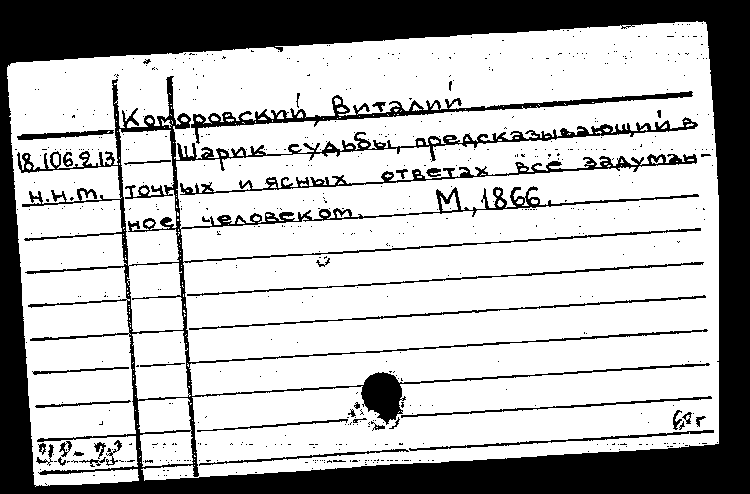 Коморовский, Виталий
18.106.2.13 Шарик судьбы, предсказывающий в
н.н.т. точных и ясных ответах все задуман-
ное человеком. М., 1866.